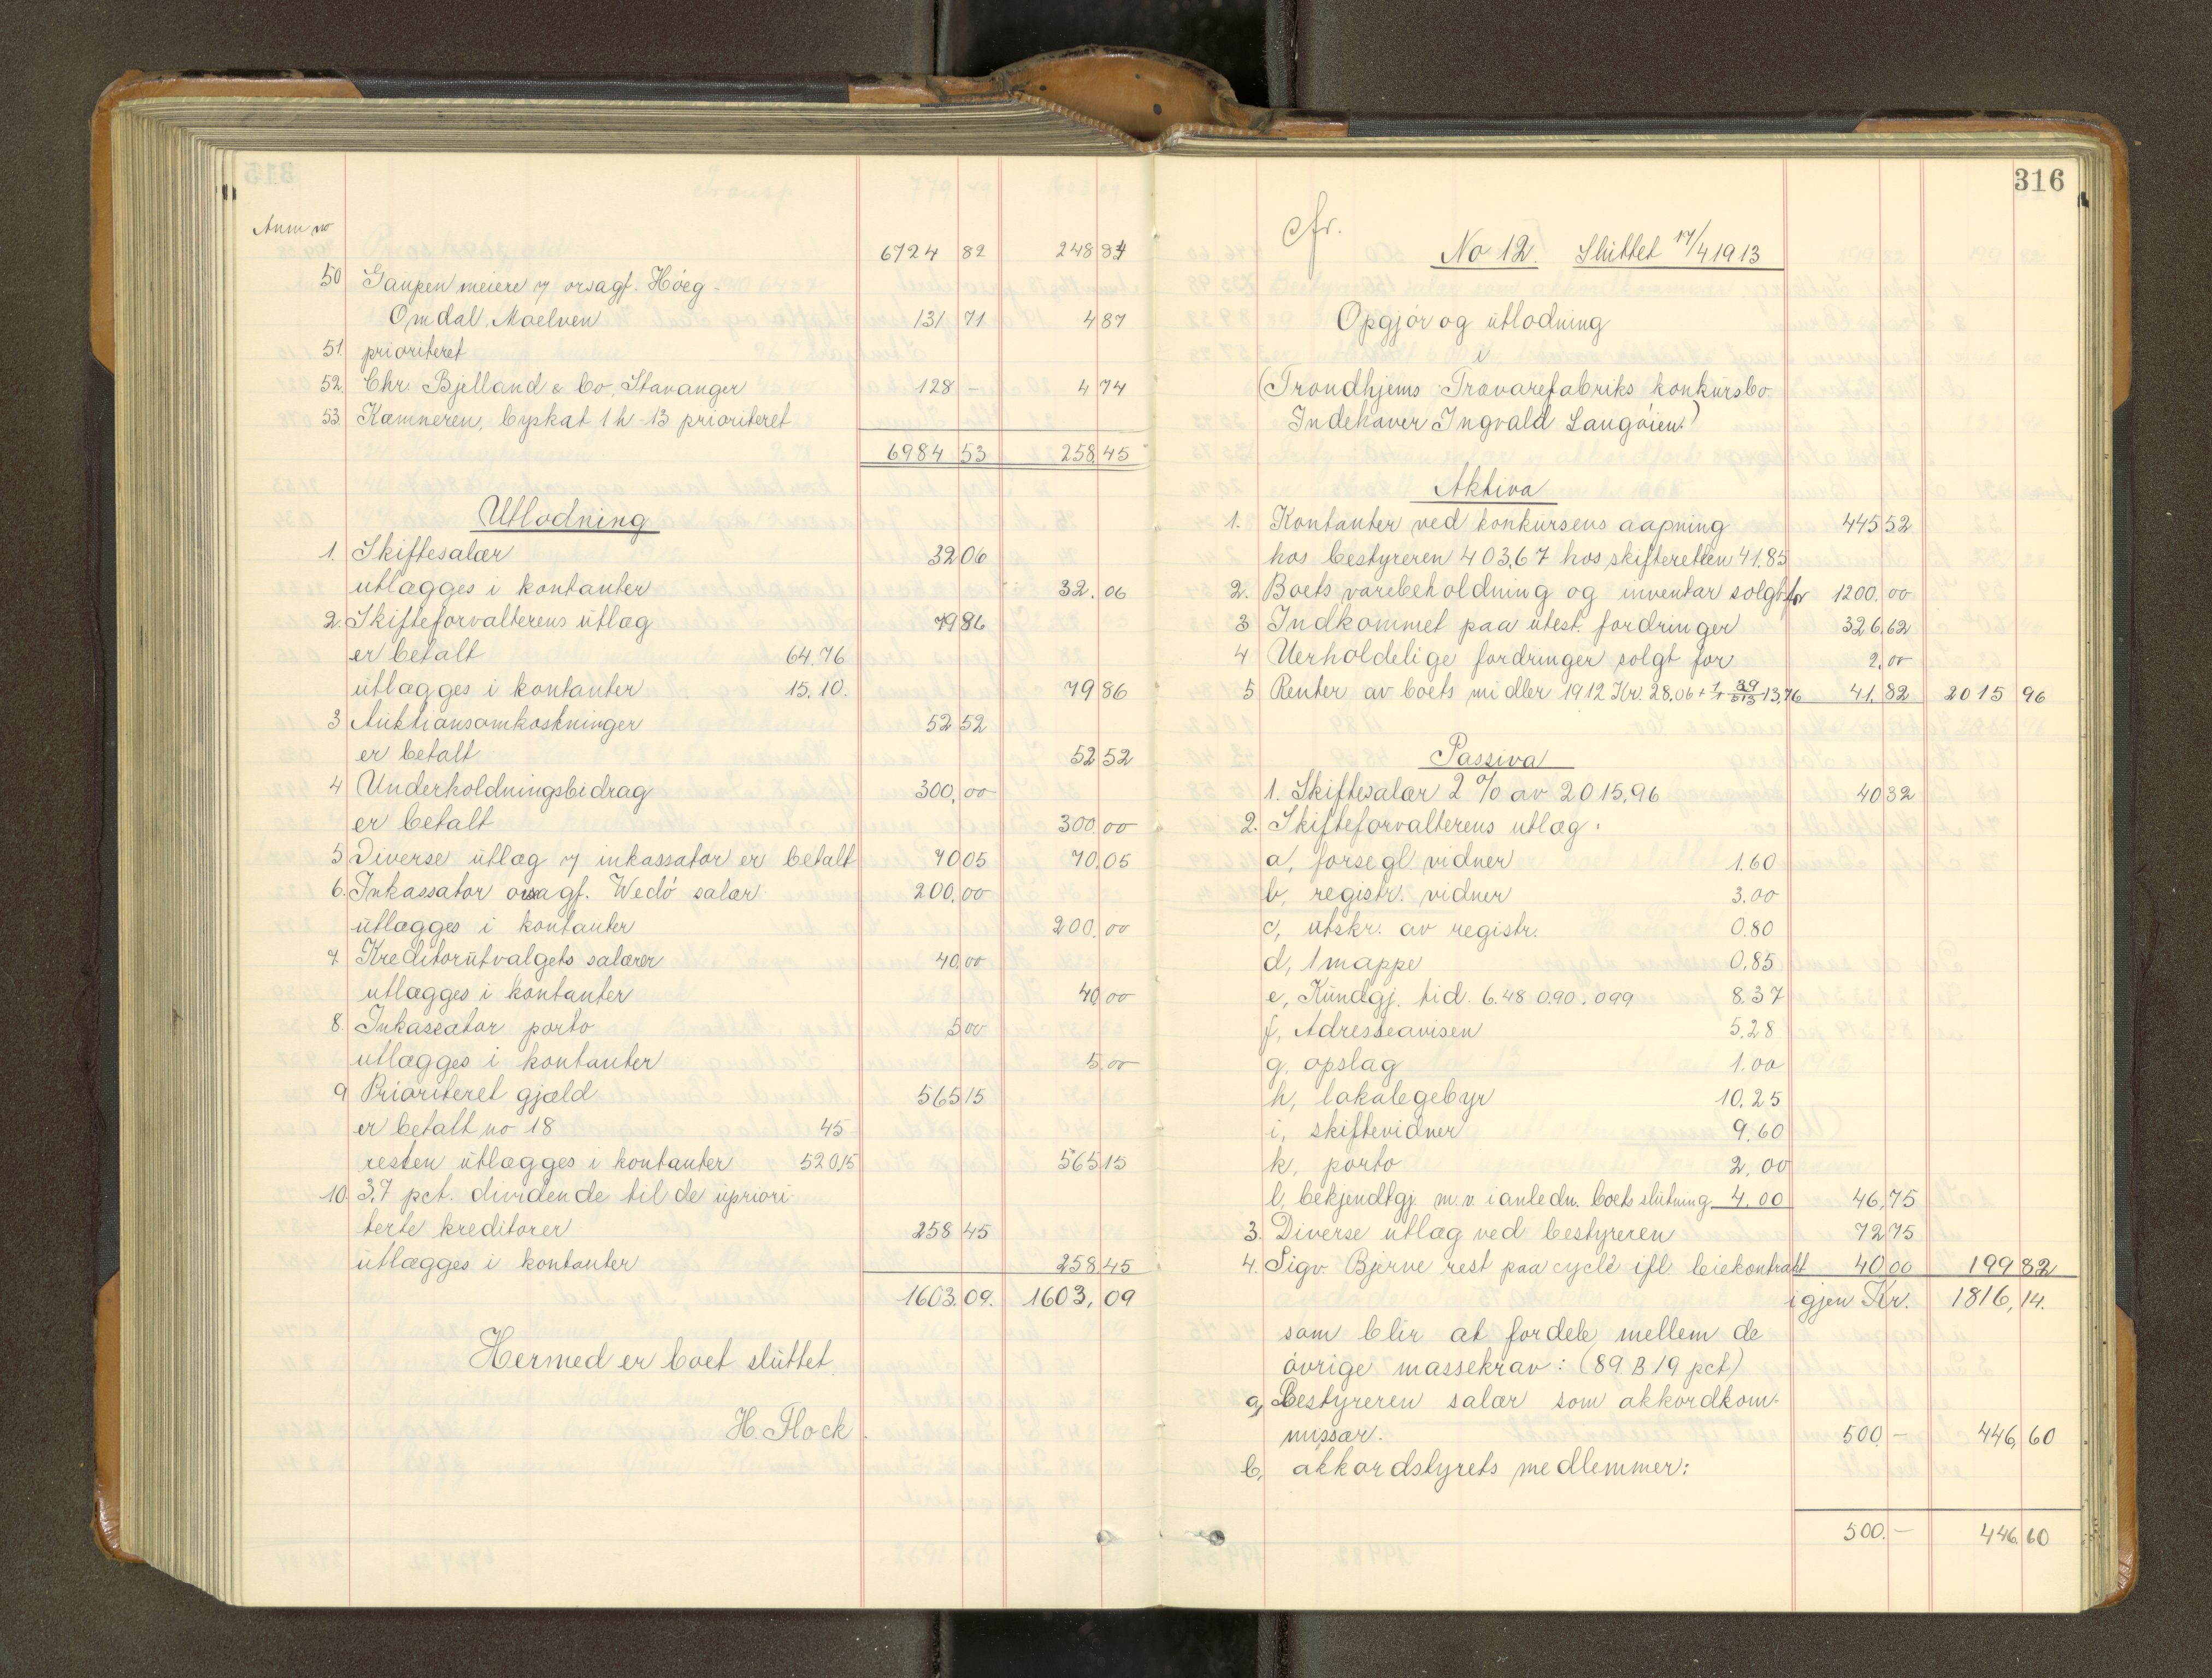 Anm no
6724 82 248 84
50 Gaupen meieri v orsagf. Høeg-
Omdal, Maelven 131 71 4 87
51 prioriteret
52. Chr. Bjelland & Co, Stavanger 128 - 4 74
53. Kæmneren, byskat 1 h -13 prioriteret
6984 53 258 45
Utlodning
1. Skiftesalær 32 06
utlægges i kontanter 32. 06
2. Skifteforvalterens utlæg 79 86
er betalt 64.76
utlægges i kontanter 15.10. 79 86
3 Auktionsomkostninger 52 52
er betalt 52 52
4 Underholdningsbidrag 300, 00
er betalt 300 00
5 Diverse utlæg v inkassator er betalt 70 05 70, 05
6. Inkassator orsagf. Wedø salær 200, 00
utlægges i kontanter 200, 00
7 Kreditorutvalgets salærer 40, 00
utlægges i kontanter 40 00
8. Inkassator porto 5 00
utlægges i kontanter 5, 00
9 Prioriteret gjæld 565 15
er betalt no 18 45
resten utlægges i kontanter 520.15 565 15
10. 3,7 pct. dividende til de upriori
terte kreditorer 258 45
utlægges i kontanter 258 45
1603. 09. 1603, 09
Hermed er boet sluttet.
H. Flock.
316
cfr.
No 12. Sluttet 17/4 1913
Opgjør og utlodning
i
(Trondhjems Trævarefabriks konkursbo.
Indehaver Ingvald Langøien.)
Aktiva
1. Kontanter ved konkursens aapning 445 52
hos bestyreren 403,67 hos skifteretten 41,85
2. Boets varebeholdning og inventar solgt for 1200. 00
3 Indkommet paa utest. fordringer 326, 62
4 Uerholdelige fordringer solgt for 2, 00
5 Renter av boets midler 1912 Kr. 28,06 + 1/1 - 29/3 13 13,76 41. 82 2015 96
Passiva
1. Skiftesalær 2 % av 2015,96 40 32
2. Skifteforvalterens utlæg.
a, forsegl. vidner 1.60
b, registr. vidner 3.00
c, utskr. av registr. 0.80
d, 1 mappe 0,85
e, Kundgj. tid. 6.48 0.90. 099 8.37
f, Adresseavisen 5.28
g, opslag 1.00
h, lokalegebyr 10,25
i, skiftevidner 9,60
k, porto 2,00
l, bekjendtgj. m.v. i anledn. boets slutning 4.00 46, 75
3. Diverse utlæg ved bestyreren 72 75
4. Sigv. Bjerve rest paa cycle ifl. leiekontrakt 40 00 199 82
igjen Kr. 1816, 14.
som blir at fordele mellem de
øvrige massekrav: (89 B 19 pct)
a, Bestyreren salær som akkordkom-
missær. 500 - 446, 60
b, akkordstyrets medlemmer:
500. - 446, 60